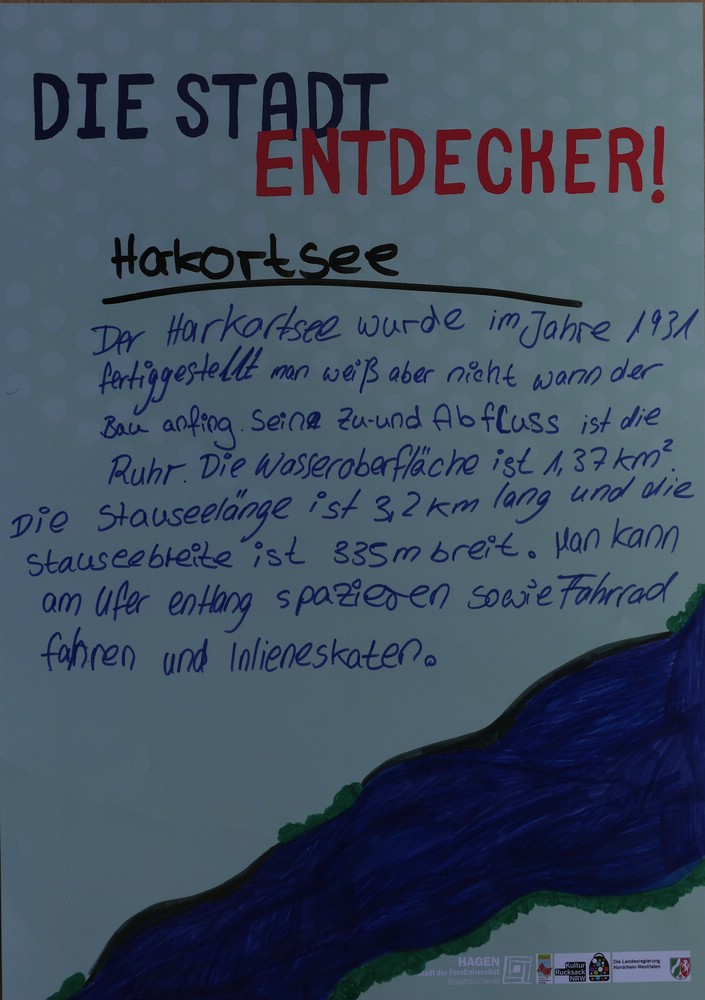 DIE STADT
ENTDECKER!
Hakortsee
Der Harkortsee wurde im Jahre 1931
fertiggestellt man weiß aber nicht wann der
Bau anfing. Seine Zu-und Abfluss ist die
Ruhr. Die Wasseroberfläche ist 1,37 km².
Die Stauseelänge ist 3,2 km lang und die
Stauseebreite ist 335m breit. Man kann
am Ufer entlang spazieren sowie Fahrrad
fahren und Inlieneskaten.
HAGEN
Stadt der FernUniversität
Stadtbücherei
Kultur
Rucksack
NRW
Die Landesregierung
Nordrhein-Westfalen